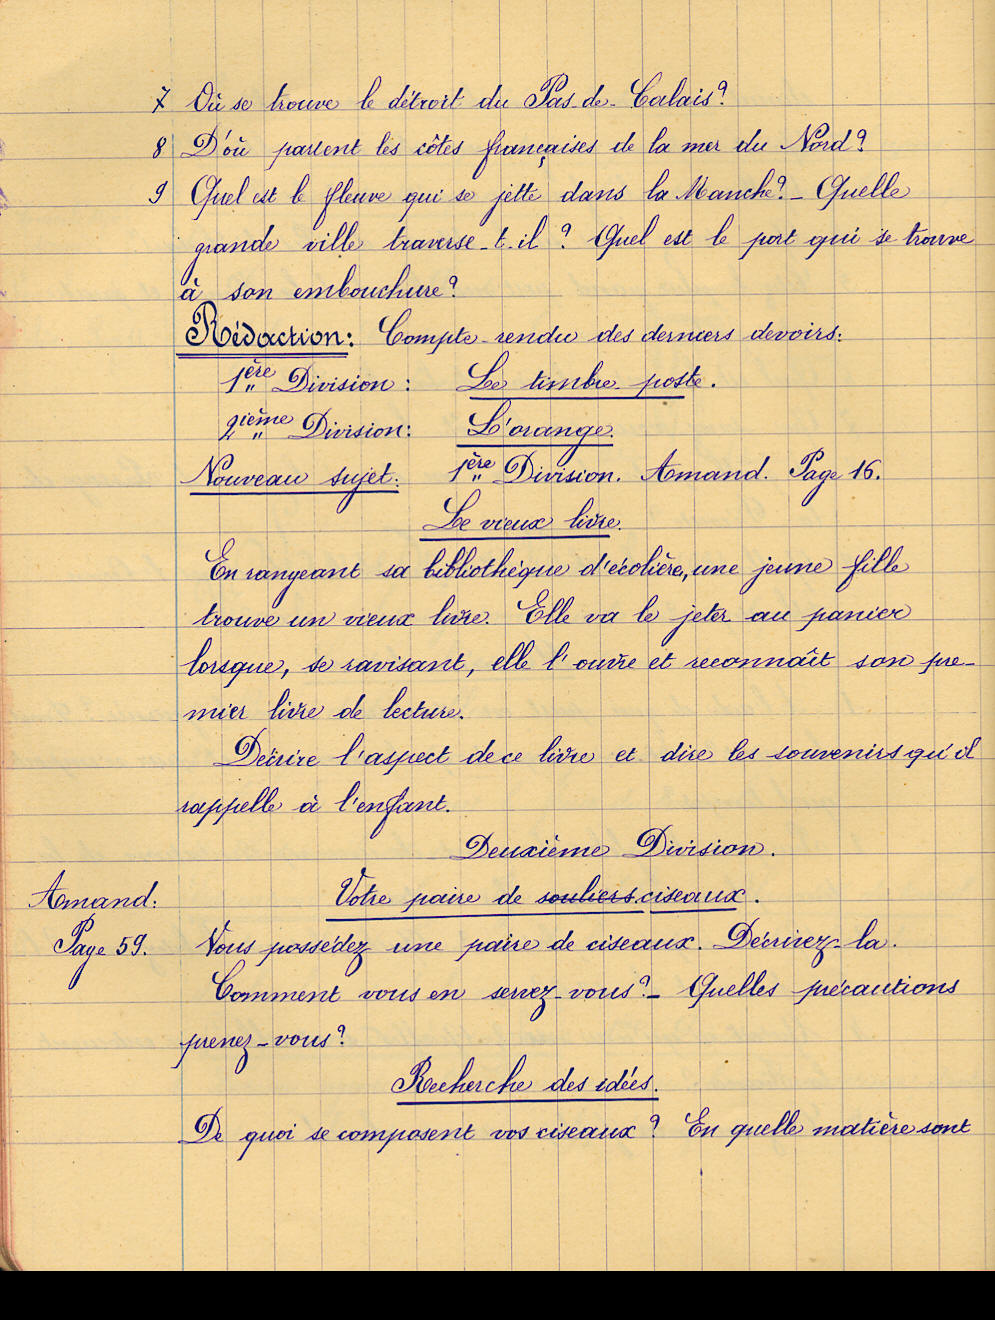 7 Où se trouve le détroit du Pas-de-Calais?
8 D'où partent les côtes françaises de la mer du Nord?
9 Quel est le fleuve qui se jette dans la Manche? - Quelle
grande ville traverse-t-il? Quel est le port qui se trouve
à son embouchure?
Rédaction: Compte-rendu des derniers devoirs:
1ère Division: Le timbre-poste.
2ième Division: L'orange.
Nouveau sujet: 1ère Division. Amand. Page 16.
Le vieux livre.
En rangeant sa bibliothèque d'écolière, une jeune fille
trouve un vieux livre. Elle va le jeter au panier
lorsque, se ravisant, elle l'ouvre et reconnaît son pre-
mier livre de lecture.
Décrire l'aspect de ce livre et dire les souvenirs qu'il
rappelle à l'enfant.
Deuxième Division.
Amand: Votre paire de souliers ciseaux.
Page 59. Vous possédez une paire de ciseaux. Décrivez-la.
Comment vous en servez-vous? - Quelles précautions
prenez-vous?
Recherche des idées.
De quoi se composent vos ciseaux? En quelle matière sont